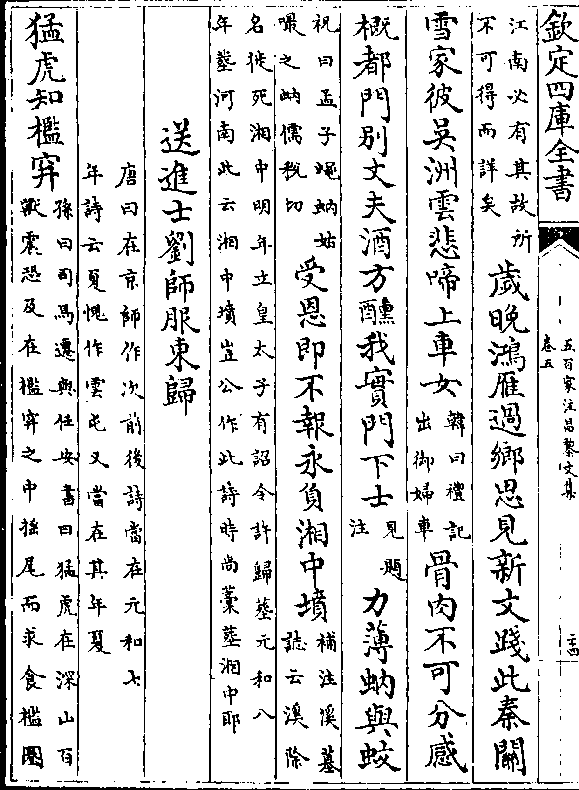 欽定四庫全書
五百家注昌黎文集
卷五
二十四
江南必有其故所
不可得而詳矣
歲晚鴻雁過鄉思見新文踐此秦關
雪家彼吳洲雲悲啼上車女
韓曰禮記
出御婦車
骨肉不可分感
概都門别丈夫酒方醺我實門下士
見題
注
力薄蚋與蚊
祝曰孟子蠅蚋姑
嘬之蚋儒稅切
受恩即不報永負湘中墳
補注溪墓
誌云溪除
名徙死湘中明年立皇太子有詔令許歸葬元和八
年葬河南此云湘中墳豈公作此詩時尚藁葬湘中耶
送進士劉師服東歸
唐曰在京師作次前後詩當在元和七
年詩云夏愧作雲屯又當在其年夏
猛虎知檻穽
孫曰司馬遷與任安書曰猛虎在深山百
獸震恐及在檻穽之中揺尾而求食檻圈